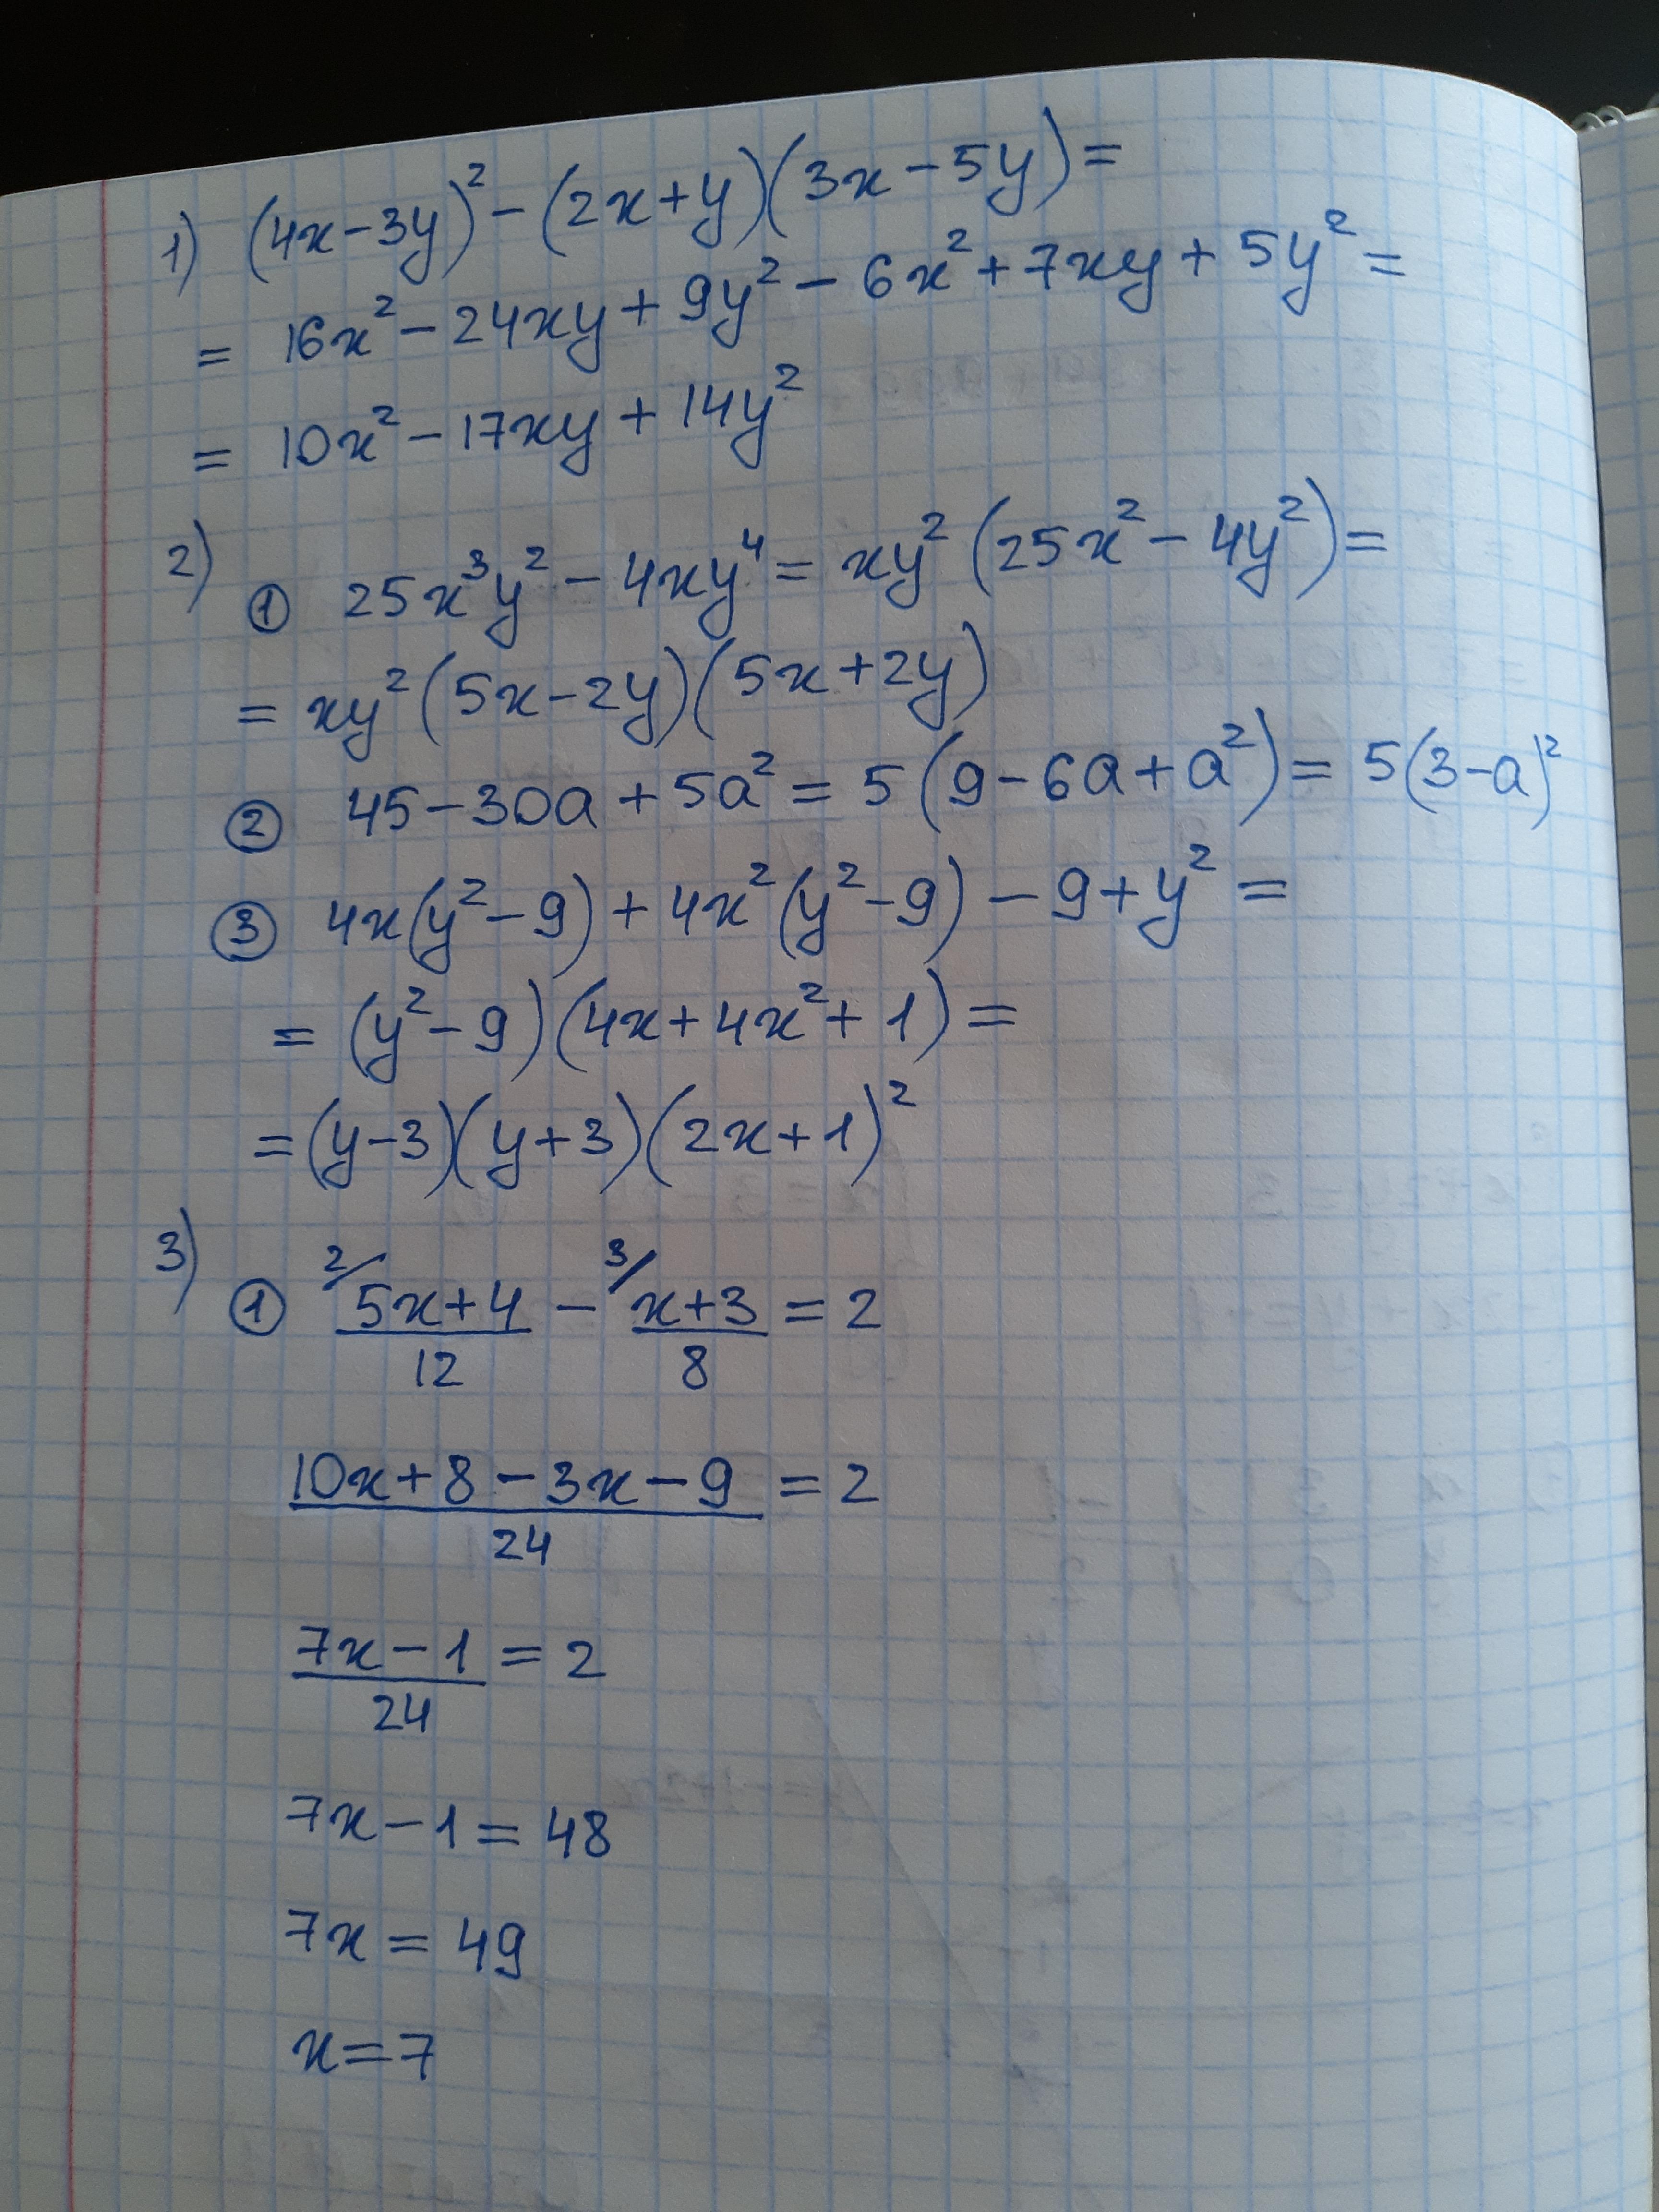 1) (4x-3y)² - (2x+y)(3x-5y) =
= 16x² - 24xy + 9y² - 6x² + 7xy + 5y² =
= 10x² - 17xy + 14y²
2) ① 25x³y² - 4xy⁴ = xy² (25x² - 4y²) =
= xy² (5x-2y)(5x+2y)
② 45 - 30a + 5a² = 5 (9 - 6a + a²) = 5(3-a)²
③ 4x(y²-9) + 4x²(y²-9) - 9 + y² =
= (y²-9)(4x + 4x² + 1) =
= (y-3)(y+3)(2x+1)²
3) ① ²⁄ 5x+4 - ³⁄ x+3 = 2
12 8
10x+8-3x-9 = 2
24
7x-1 = 2
24
7x-1 = 48
7x = 49
x=7